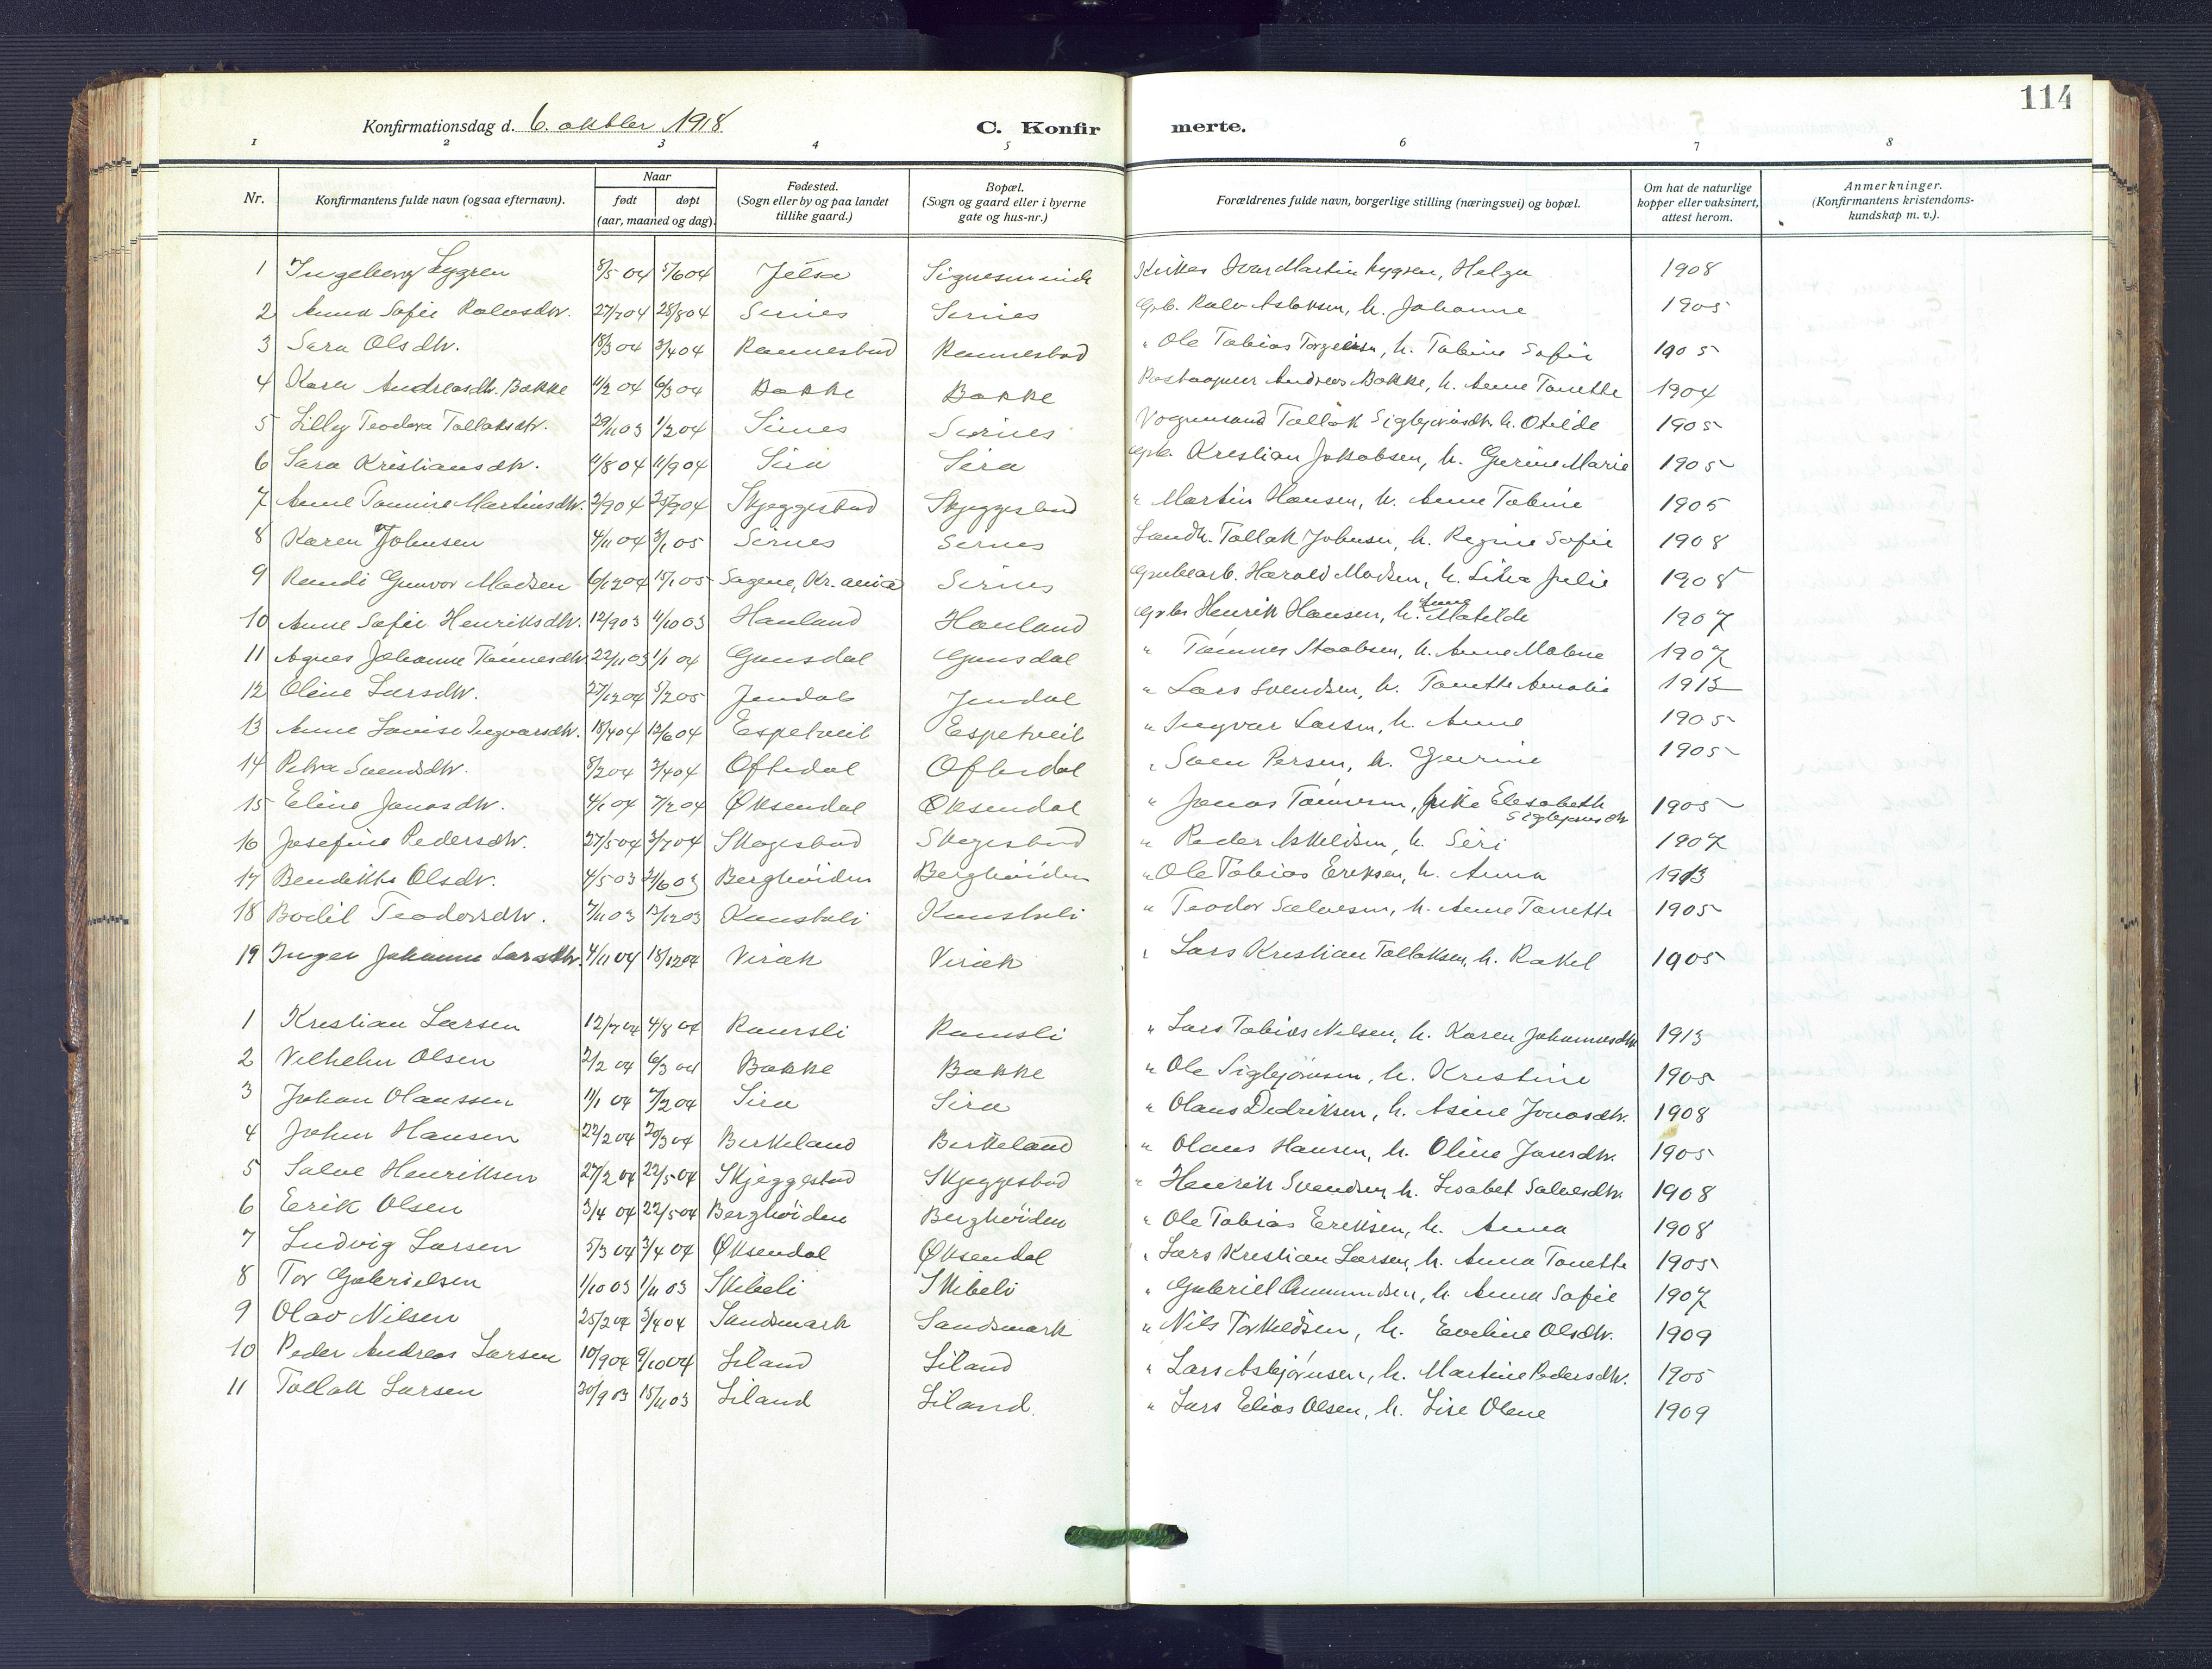 114
Konfirmationsdag d. 6. oktbler 1918
C. Konfirmerte.
1 2 3 4 5 6 7 8
Nr. Konfirmantens fulde navn (ogsaa efternavn). Naar født døpt (aar, maaned og dag). Fødested. (Sogn eller by og paa landet tillike gaard.) Bopæl. (Sogn og gaard eller i byerne gate og hus-nr.) Forældrenes fulde navn, borgerlige stilling (næringsvei) og bopæl. Om hat de naturlige kopper eller vaksinert, attest herom. Anmerkninger. (Konfirmantens kristendoms-kundskap m. v.).
1 Ingeborg Lygren 8/5 04 5/6 04 Jelsa Ivar Martin Lygren, Helga 1908
2 Anna Sofie Ralvsdtr. 27/7 04 28/8 04 Sirnes Sirnes Gpb. Ralv Aslaksen, h. Johanne 1905
3 Sara Olsdtr. 18/3 04 3/4 04 Rannestad Rannestad " Ole Tobias Torgeirsen, h. Tabine Sofie 1905
4 Karen Andreasdtr. Bakke 11/2 04 6/3 04 Bakke Bakke Postaapner Andreas Bakke, h. Anne Tonette 1904
5 Lilly Teodora Tollaksdtr. 29/11 03 1/2 04 Sirnes Sirnes Vognmand Tollak Sigbjørnsdtr. h. Otilde 1905
6 Sara Kristiansdtr. 11/8 04 11/9 04 Sira Sira Gpb. Kristian Jakobsen, h. Gurine Marie 1905
7 Anne Tomine Martinsdtr. 2/9 04 25/9 04 Skjeggestad Skjeggestad " Martin Hansen, h. Anne Tobine 1905
8 Karen Johnsen 4/11 04 3/1 05 Sirnes Sirnes Landh. Tollak Johnsen, h. Regine Sofie 1908
9 Randi Gunvor Madsen 6/12 04 15/1 05 Sagene, Kr.ania Sirnes Grubearb. Harald Madsen, h. Lina Julie 1908
10 Anne Sofie Henriksdtr. 12/9 03 11/10 03 Hauland Hauland Gpb. Henrik Hansen, h. Anne Matilde 1907
11 Agnes Johanne Tønnesdtr. 22/11 03 1/1 04 Gunsdal Gunsdal " Tønnes Staalesen, h. Anne Malene 1907
12 Oline Larsdtr. 27/12 04 5/2 05 Jendal Jendal " Lars Svendsen, h. Tonette Amalie 1913
13 Anne Lovise Ingvarsdtr. 18/4 04 12/6 04 Espetveit Espetveit " Ingvar Larsen, h. Anne 1905
14 Petra Svendsdtr. 8/2 04 3/4 04 Oftedal Oftedal " Sven Persen, h. Gurine 1905
15 Eline Jonasdtr. 4/1 04 7/2 04 Øksendal Øksendal " Jonas Tønnesen, Elesabeth Sigbjørnsdtr 1905
16 Josefine Pedersdtr. 27/5 04 3/7 04 Skogestad Skogestad " Peder Askeldsen, h. Siri 1907
17 Bendikte Olsdtr. 4/5 03 21/6 03 Berghøiden Berghøiden " Ole Tobias Eriksen, h. Anna 1913
18 Bodil Teodorsdtr. 7/11 03 13/12 03 " Teodor Salvesen, h. Anne Tonette 1905
19 Inger Johanne Larsdtr. 4/11 04 18/12 04 Virak Virak " Lars Kristian Tollaksen, h. Rakel 1905
1 Kristian Larsen 12/7 04 4/8 04 Ramsli Ramsli " Lars Tobias Nilsen, h. Karen Johannesdtr 1913
2 Vilhelm Olsen 2/2 04 6/3 04 Bakke Bakke " Ole Sigbjørnsen, h. Kristine 1905
3 Johan Olaussen 11/1 04 7/2 04 Sira Sira " Olaus Dedriksen, h. Asine Jonasdtr. 1908
4 John Hansen 22/2 04 20/3 04 Birkeland Birkeland " Olaus Hansen, h. Oline Jonsdtr. 1905
5 Salve Henriksen 27/2 04 22/5 04 Skjeggestad Skjeggestad " Henrik Svendsen, h. Lisabet Salvesdtr. 1908
6 Eerik Olsen 3/4 04 22/5 04 Berghøiden Berghøiden " Ole Tobias Eriksen, h. Anna 1908
7 Ludvig Larsen 5/3 04 3/4 04 Øksendal Øksendal " Lars Kristian Larsen, h. Anna Tonette 1905
8 Tor Gabrielsen 1/10 03 1/11 03 Skibeli Skibeli " Gabriel Ommundsen, h. Anna Sofie 1907
9 Olav Nilsen 25/2 04 3/4 04 Sandsmark Sandsmark " Nils Torkeldsen, h. Eveline Olsdtr. 1909
10 Peder Andreas Larsen 10/9 04 9/10 04 Liland Liland " Lars Asbjørnsen, h. Martine Pedersdtr. 1905
11 Tollak Larsen 30/9 03 15/11 03 Liland Liland. " Lars Elias Olsen, h. Lise Olene 1909